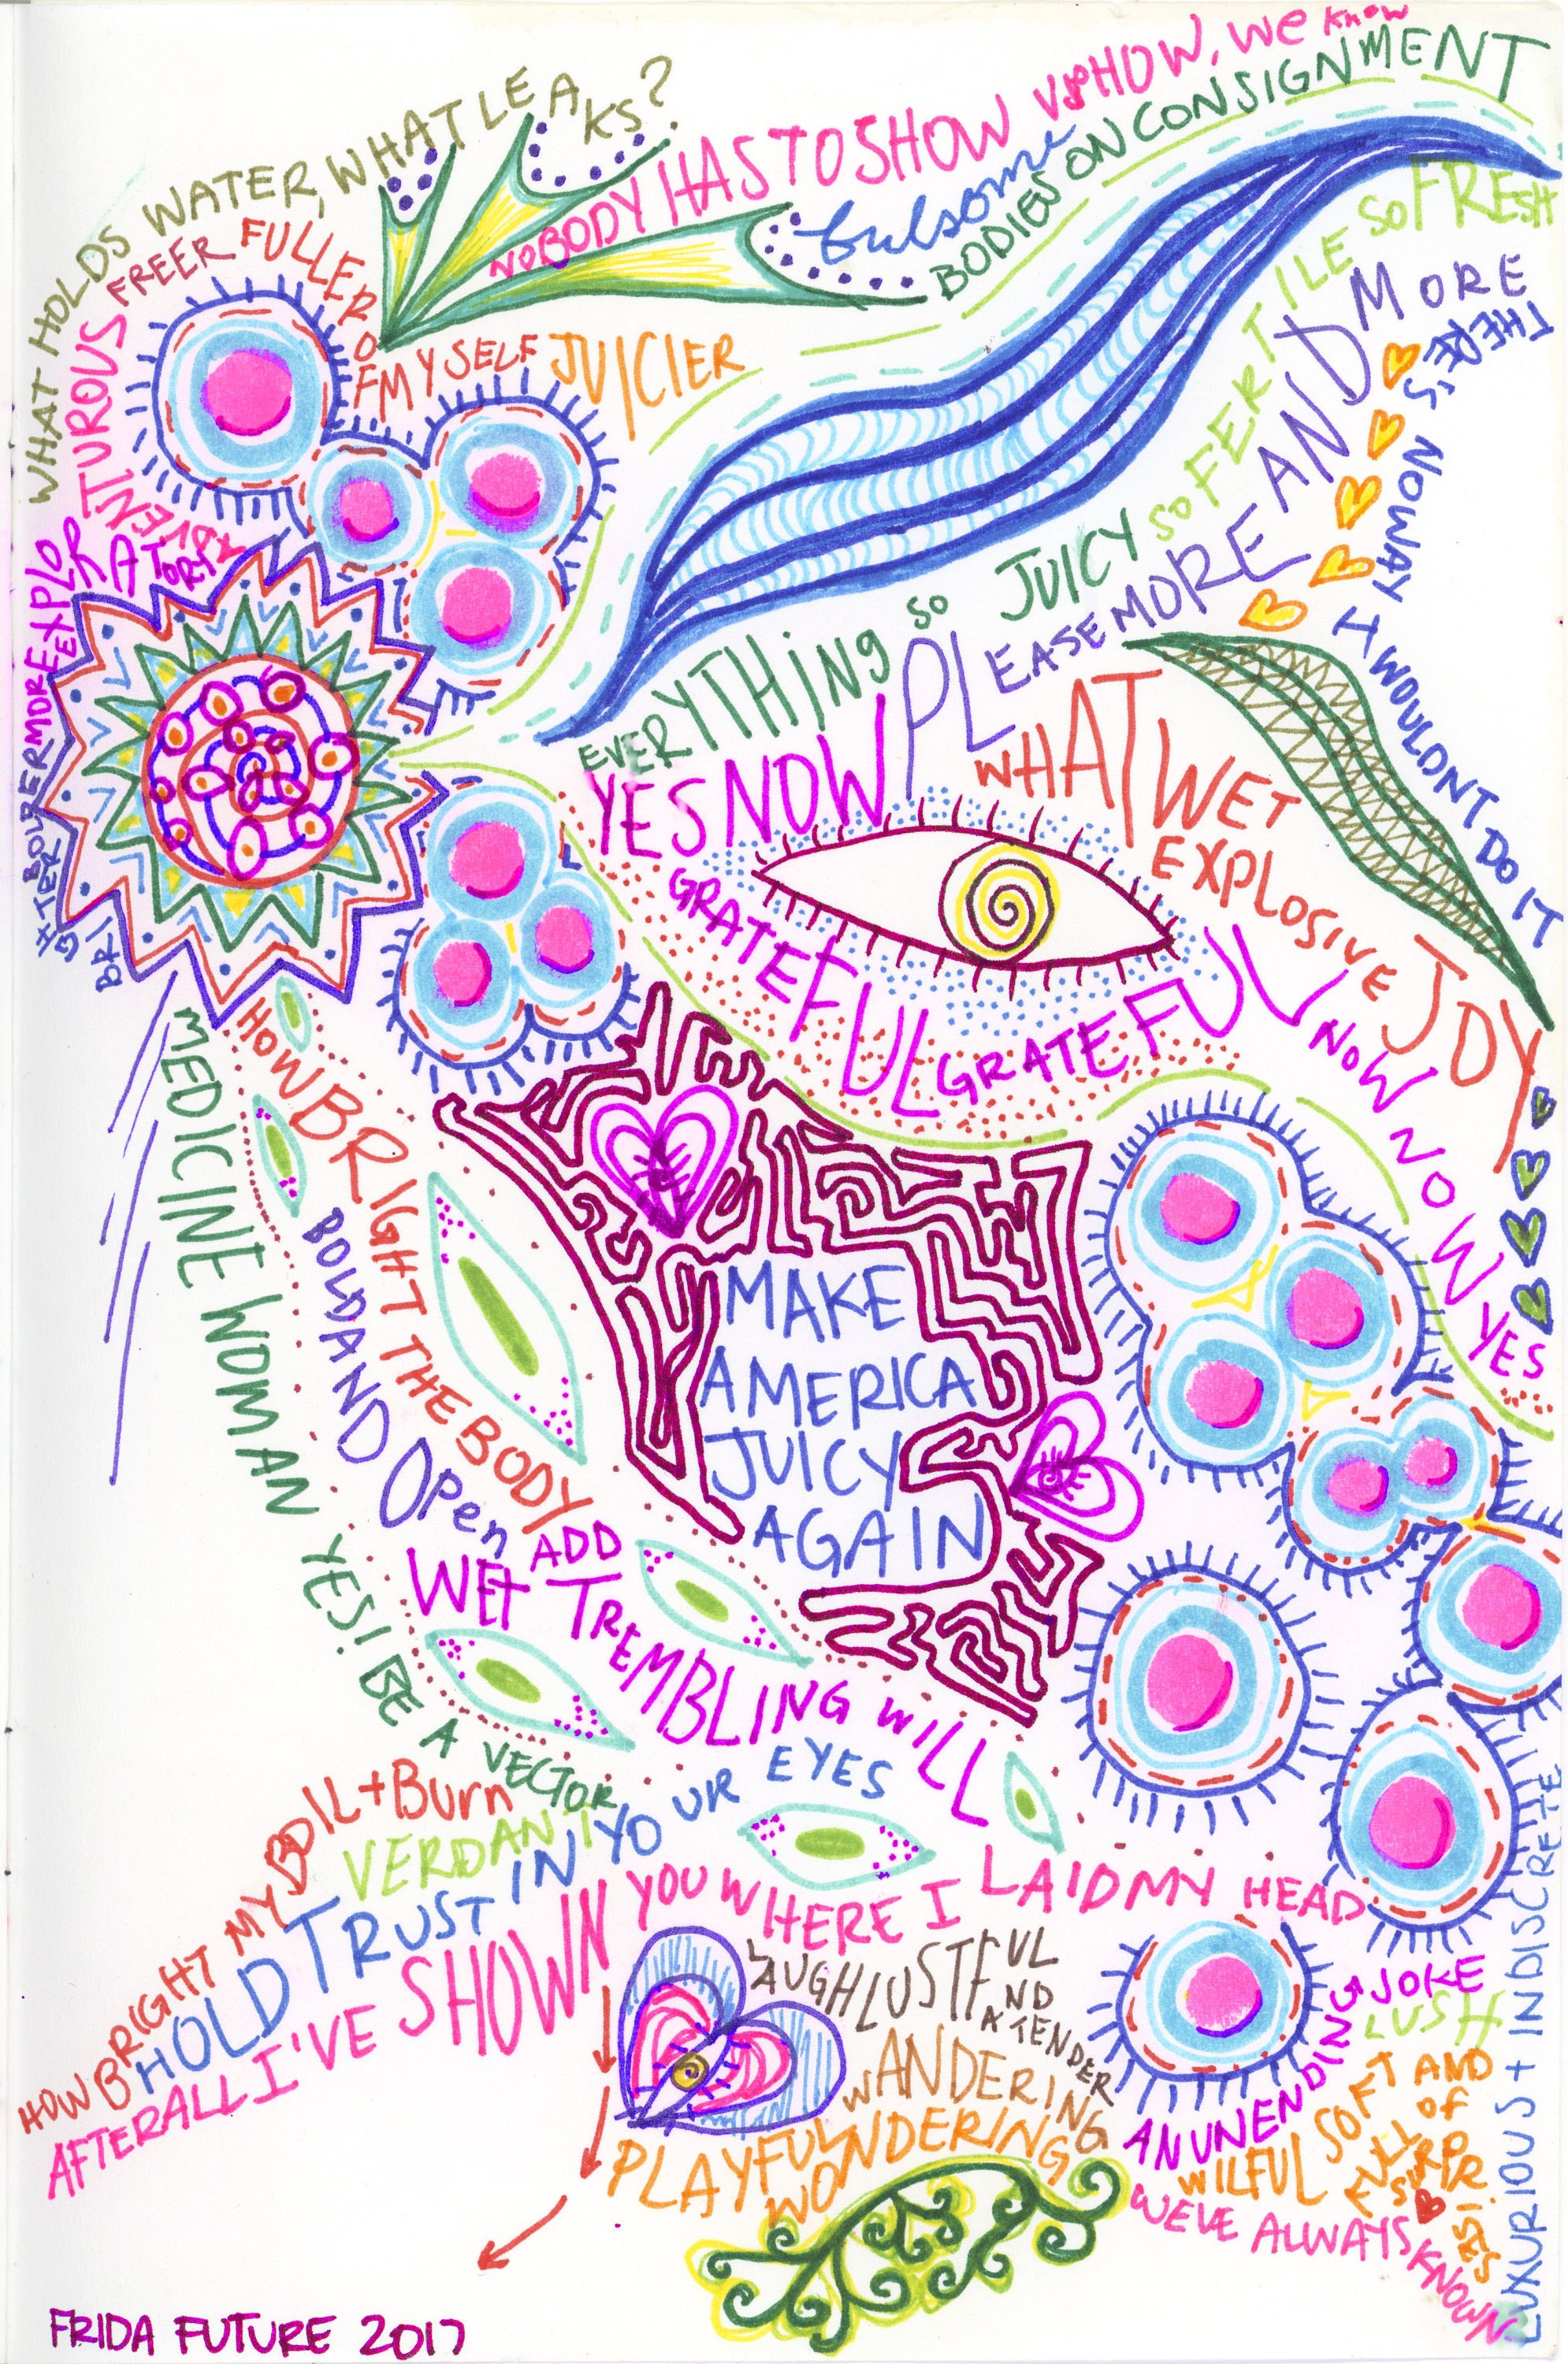 WHAT HOLDS WATER, WHAT LEAKS?
NOBODY HAS TO SHOW US HOW, WE KNOW
fulsome
BODIES ON CONSIGNMENT
ADVENTUROUS FREER FULLER
OF MYSELF JUICIER
BOLDER MORE EXPLORATORY
EVERYTHING SO JUICY SO FERTILE SO FRESH
YES NOW PLEASE MORE AND MORE AND MORE
THERE'S NO WAY I WOULDNT DO IT
WHAT WET EXPLOSIVE JOY
GRATEFUL GRATEFUL NOW NOW YES
MAKE
AMERICA
JUICY
AGAIN
HOW BRIGHT THE BODY
BOLD AND OPEN
MEDICINE WOMAN YES! BE A VECTOR
ADD
WET TREMBLING WILL
HOW BRIGHT MY BOIL + BURN
VERDANT
HOLD TRUST IN YOUR EYES
AFTERALL I'VE SHOWN YOU WHERE I LAID MY HEAD
LAUGH LUSTFUL
AND
A TENDER
WANDERING
PLAYFUL WONDERING
AN UNENDING JOKE
LUSH
WILFUL SOFT AND
FULL OF
SURPRISES
WE'VE ALWAYS KNOWN
LUXURIOUS + INDISCRETE
FRIDA FUTURE 2017